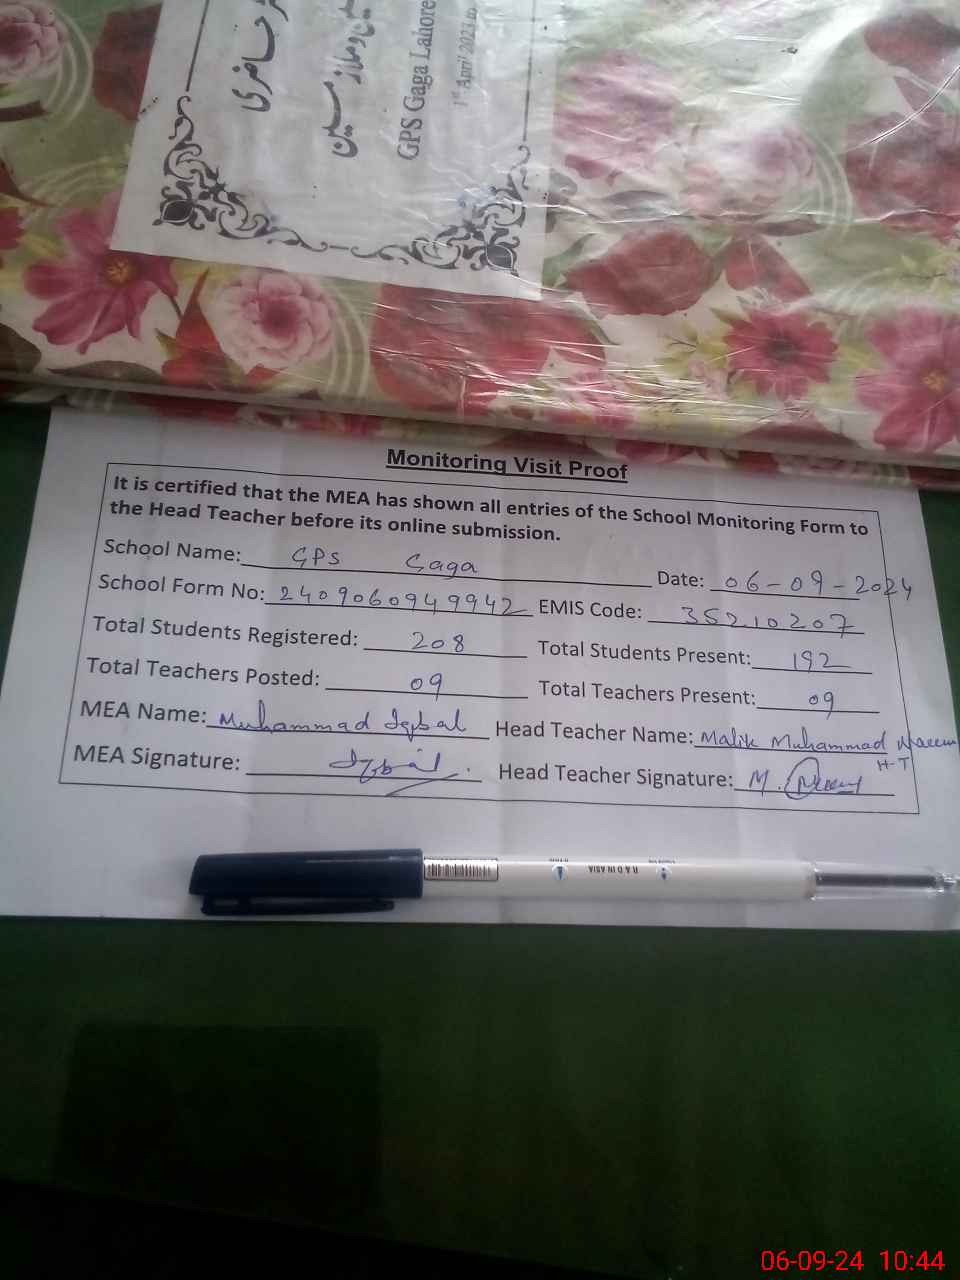 حاضری
GPS Gaga Lahore
1st April 2023 to
Monitoring Visit Proof
It is certified that the MEA has shown all entries of the School Monitoring Form to
the Head Teacher before its online submission.
School Name: GPS Gaga Date: 06-09-2024
School Form No: 2409060949942 EMIS Code: 35210207
Total Students Registered: 208 Total Students Present: 192
Total Teachers Posted: 09 Total Teachers Present: 09
MEA Name: Muhammad Iqbal Head Teacher Name: Malik Muhammad Naeem
H-T
MEA Signature: Iqbal Head Teacher Signature: M. Naeem
R & D IN ASIA
06-09-24 10:44